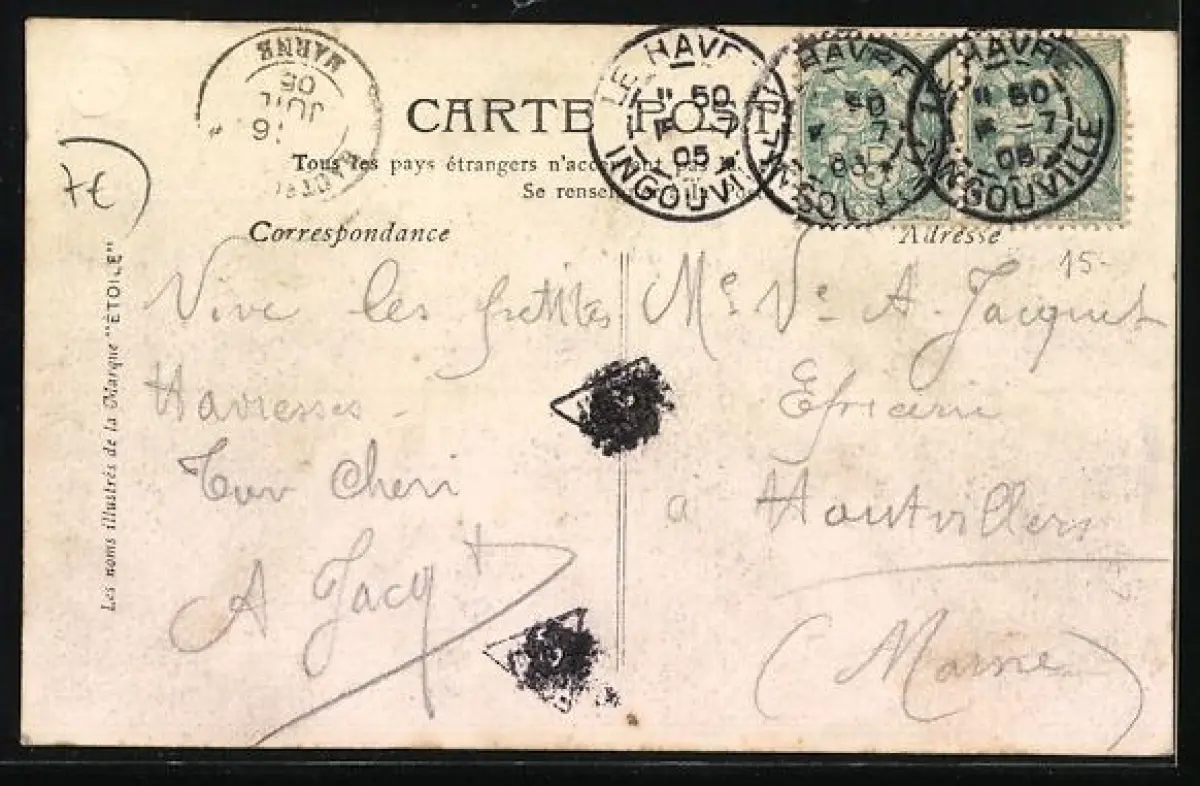 MARNE
6
JUIL
05
CARTE POSTALE
LE HAVRE
11 50
-7
05
INGOUVILLE
HAVRE
50
7
LE HAVRE
11 50
-7
05
INGOUVILLE
Tous les pays étrangers n'acceptent pas
Se renseigner
7€
Correspondance
Adresse
15-
Vive les petites
Havresses -
Ton Cheri
A Jacqt
Me Ve A. Jacquet
Epicerie
a Hautvillers
(Marne)
Les noms illustrés de la Marque "ÉTOILE"